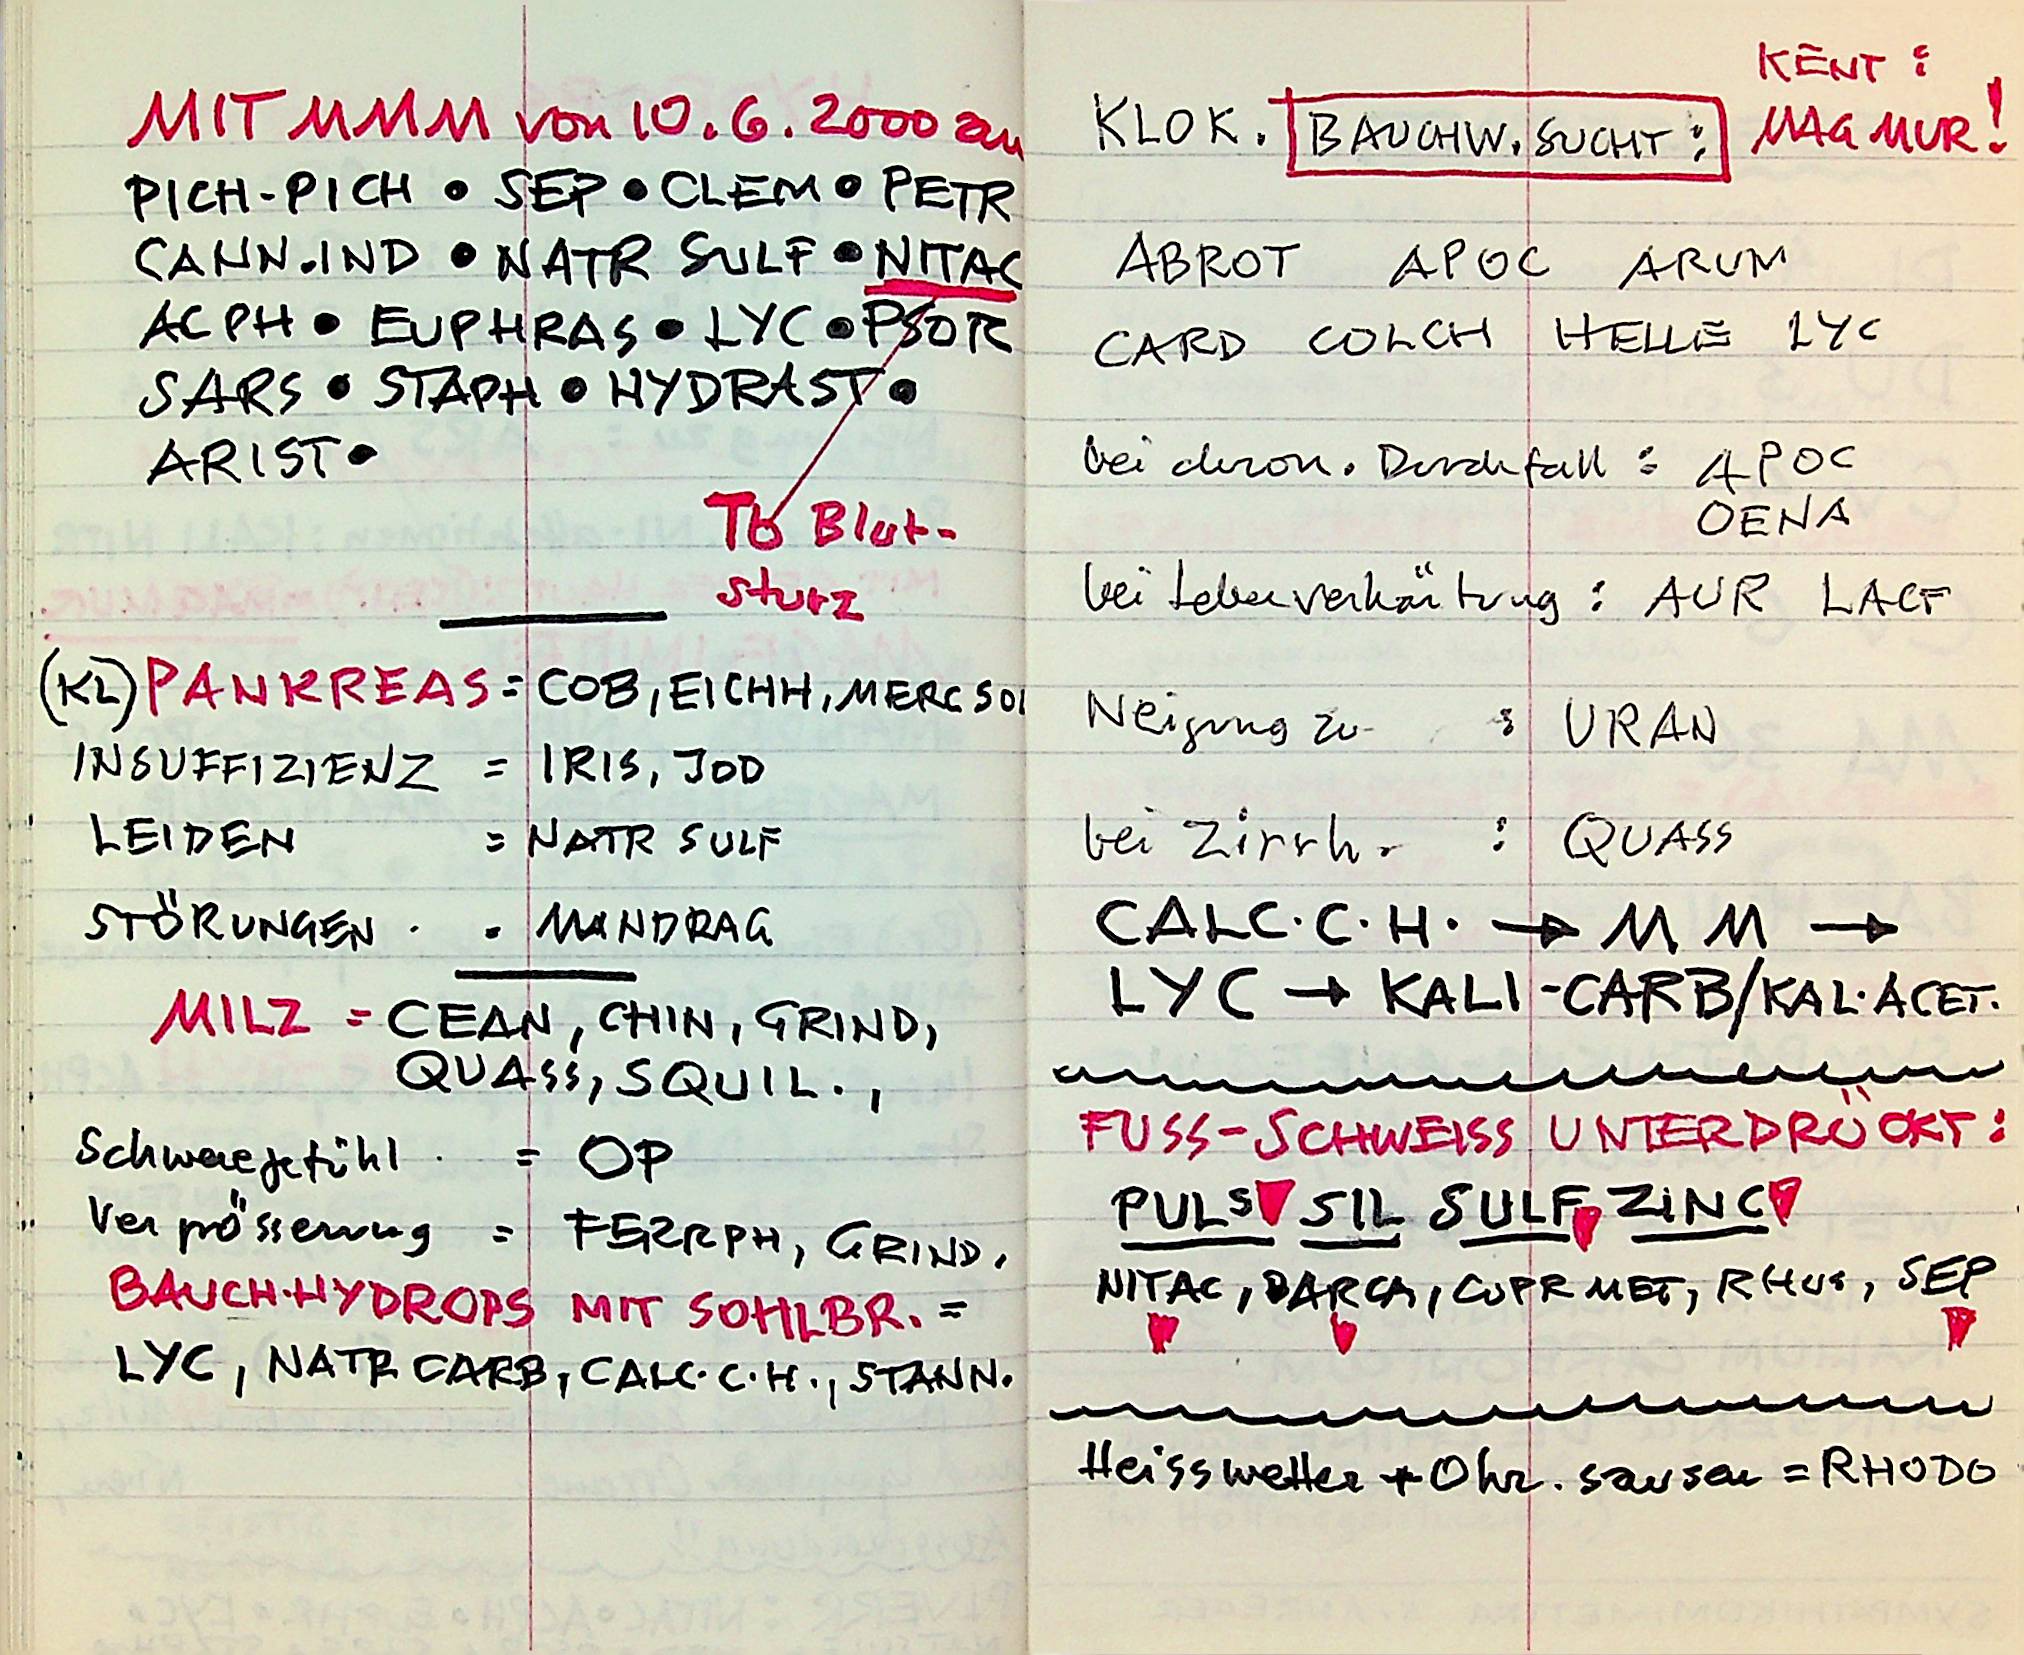 MIT MMM von 10.6.2000 an
PICH-PICH • SEP • CLEM • PETR
CANN.IND • NATR SULF • NITAC
ACPH • EUPHRAS • LYC • PSOR
SARS • STAPH • HYDRAST •
ARIST •
Tb Blut-
sturz
(KL) PANKREAS = COB, EICHH, MERC SOL
INSUFFIZIENZ = IRIS, JOD
LEIDEN = NATR SULF
STÖRUNGEN . . MANDRAG
MILZ = CEAN, CHIN, GRIND,
QUASS, SQUIL.,
Schweregefühl . = OP
Vergrösserung = FERRPH, GRIND.
BAUCH-HYDROPS MIT SOHLBR. =
LYC, NATR CARB, CALC.C.H., STANN.
KENT:
KLOK. BAUCHW.SUCHT: MAG MUR!
ABROT APOC ARUM
CARD COLCH HELLE LYC
bei chron. Durchfall : APOC
OENA
bei Leberverhärtung : AUR LACT
Neigung zu : URAN
bei Zirrh. : QUASS
CALC.C.H. → MM →
LYC → KALI-CARB/KAL.ACET.
FUSS-SCHWEISS UNTERDRÜCKT:
PULS SIL SULF, ZINC
NITAC, BARCA, CUPR MET, RHUS, SEP
Heisswetter + Ohr.sausen = RHODO